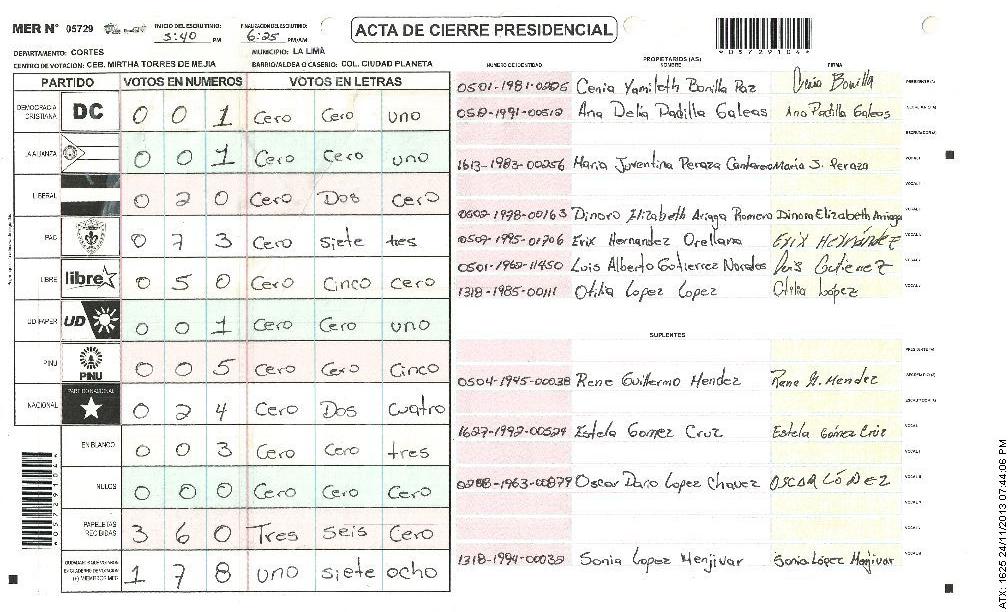 MER N° 05729
INICIO DEL ESCRUTINIO: 5:40 PM
FINALIZACION DEL ESCRUTINIO: 6:25 PM/AM
ACTA DE CIERRE PRESIDENCIAL
DEPARTAMENTO: CORTES
MUNICIPIO: LA LIMA
CENTRO DE VOTACION: CEB. MIRTHA TORRES DE MEJIA
BARRIO/ALDEA O CASERIO: COL. CIUDAD PLANETA
PARTIDO VOTOS EN NUMEROS VOTOS EN LETRAS
DEMOCRACIA CRISTIANA DC 0 0 1 Cero Cero uno
LA ALIANZA 0 0 1 Cero Cero uno
LIBERAL 0 2 0 Cero Dos Cero
PAC 0 7 3 Cero siete tes
LIBRE libre 0 5 0 Cero Cinco cero
UD/FAPER UD 0 0 1 Cero Cero uno
PINU PINU 0 0 5 Cero Cero Cinco
NACIONAL PARTIDO NACIONAL 0 2 4 Cero Dos cuatro
EN BLANCO 0 0 3 Cero Cero tres
NULOS 0 0 0 Cero Cero Cero
PAPELETAS RECIBIDAS 3 6 0 Tres seis Cero
1 7 8 uno siete ocho
PROPIETARIOS (AS)
NUMERO DE IDENTIDAD NOMBRE FIRMA
Cenia Yamileth Bonilla Paz Cenia Bonilla
Ana Delia Padilla Galeas Ana Padilla Galeas
1613-1983-00256 Maria Juventina Peraza Cantarero Maria J. Peraza
0502-1978-00163 Dinora Elizabeth Arriaga Romero Dinora Elizabeth Arriaga
0507-1995-01706 Erix Hernandez Orellana ERIX HERNÁNDEZ
0501-1962-11450 Luis Alberto Gutierrez Nordes Luis Gutierrez
1318-1985-00111 Otilia Lopez Lopez Otilia López
SUPLENTES
0504-1945-00038 Rene Guillermo Mendez Rene G. Mendez
1627-1992-00524 Estela Gomez Cruz Estela Gómez Cruz
Oscar Dario Lopez Chavez OSCAR LÓPEZ
1318-1994-00039 Sonia Lopez Menjivar Sonia López Menjivar
ATX: 1625 24/11/2013 07:44:06 PM